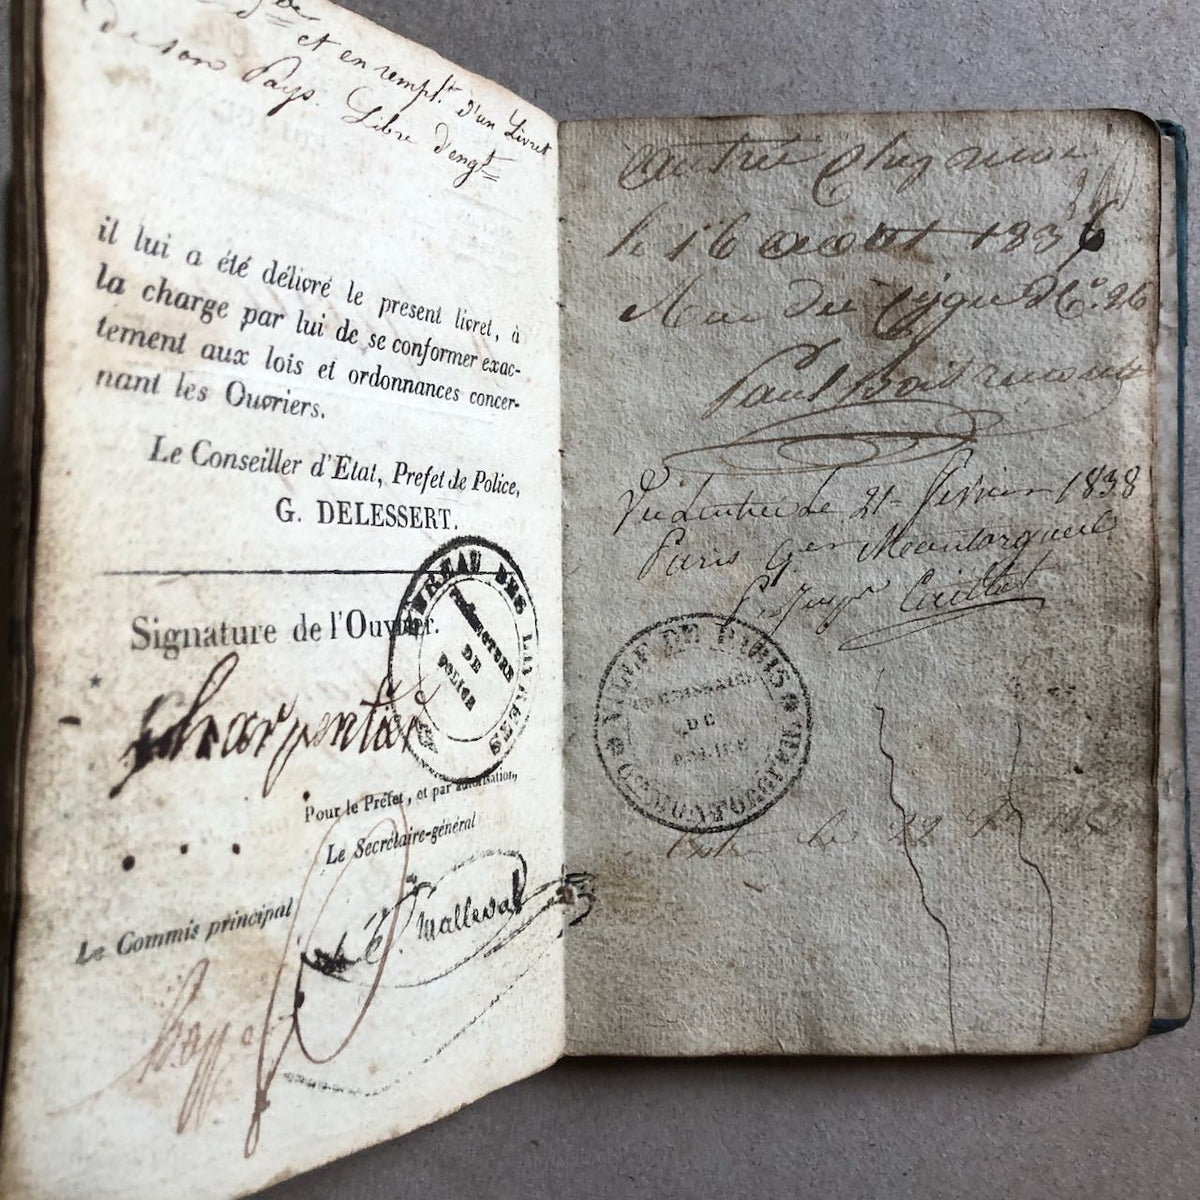 et en rempl.t d'un Livret
de son Pays. Libre d'engt
il lui a été délivré le present livret, à
la charge par lui de se conformer exac-
tement aux lois et ordonnances concer-
nant les Ouvriers.
Le Conseiller d'Etat, Prefet de Police,
G. DELESSERT.
Signature de l'Ouvrier.
BUREAU DES LIVRETS
PRÉFECTURE
DE
POLICE
Charpentier
Pour le Préfet, et par autorisation,
Le Secrétaire-général
Malleval
Le Commis principal
entrée chez moi
le 16 aout 1836
Rue du Cygne No. 26
Paul
Vu l'entrée le 21 fevrier 1838
Paris qer Montorgueil
Caillet
VILLE DE PARIS
COMMISSAIRE
DE
POLICE
le 22